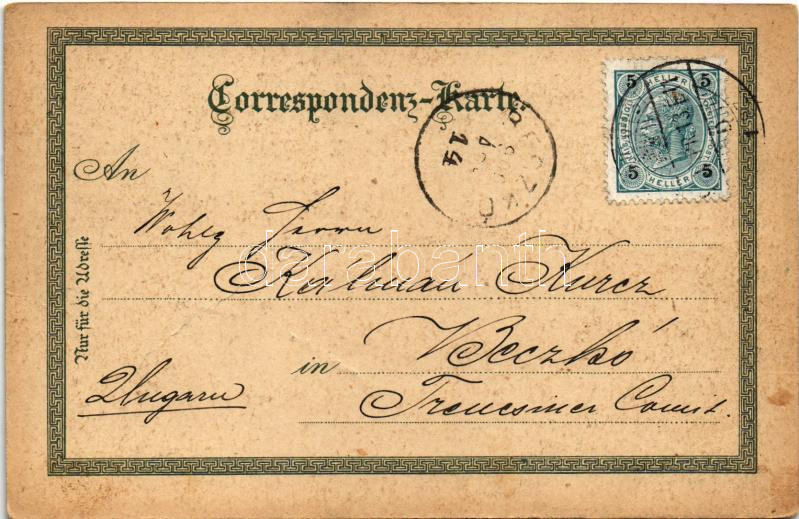 Correspondenz-Karte.
5 5
HELLER
5 5
HELLER
BECZKÓ
14
An
Wohlg Herrn
Kálmán Kurcz
in Beczkó
Ungarn
Trencsiner Comit.
Nur für die Adresse
darabanth